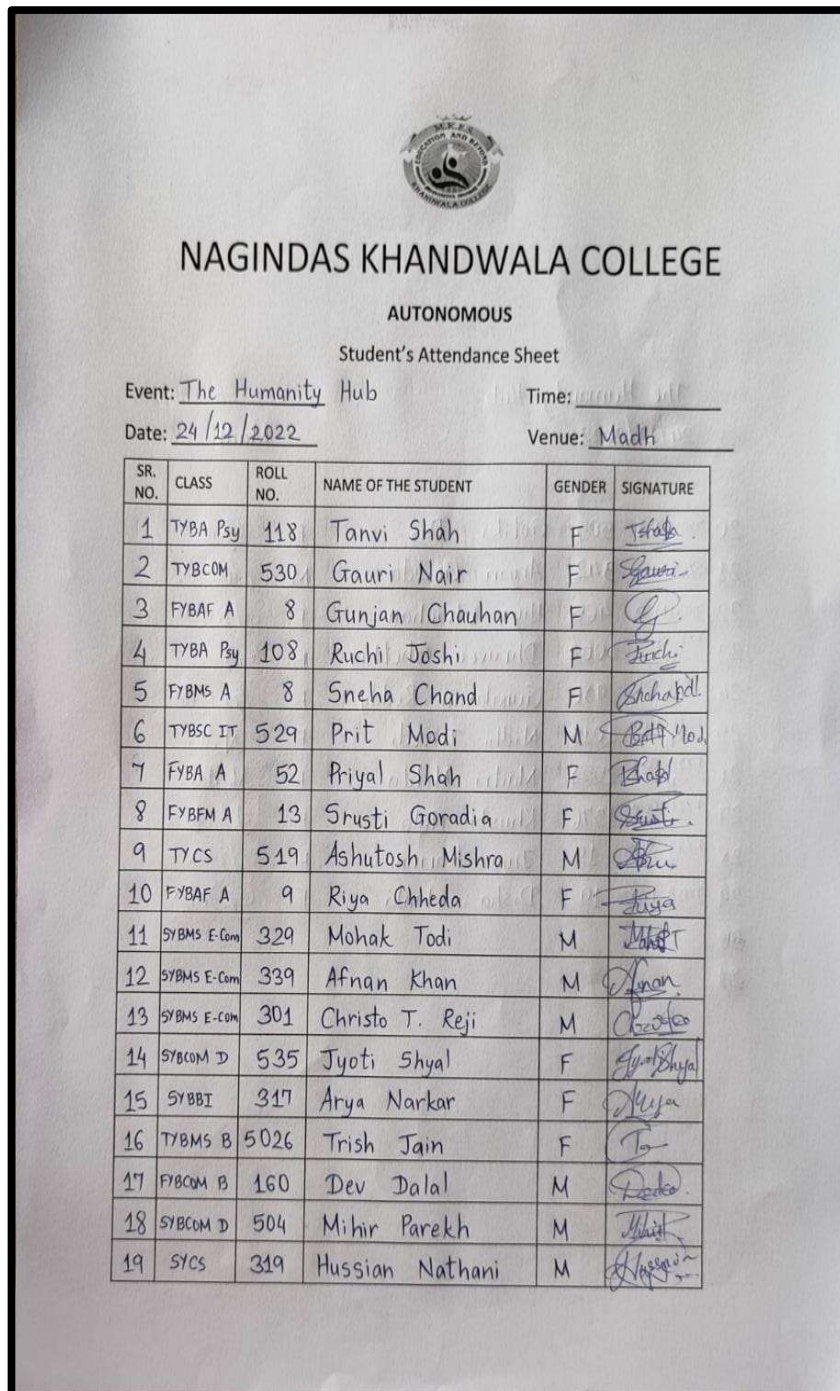 M.K.E.S.
EDUCATION AND BEYOND
KHANDWALA COLLEGE
NAGINDAS KHANDWALA COLLEGE
AUTONOMOUS
Student's Attendance Sheet
Event: The Humanity Hub Time:
Date: 24/12/2022 Venue: Madh
SR. NO. CLASS ROLL NO. NAME OF THE STUDENT GENDER SIGNATURE
1 TYBA Psy 118 Tanvi Shah F
2 TYBCOM 530 Gauri Nair F
3 FYBAF A 8 Gunjan Chauhan F
4 TYBA Psy 108 Ruchi Joshi F
5 FYBMS A 8 Sneha Chand F
6 TYBSC IT 529 Prit Modi M
7 FYBA A 52 Priyal Shah F
8 FYBFM A 13 Srusti Goradia F
9 TYCS 519 Ashutosh Mishra M
10 FYBAF A 9 Riya Chheda F Riya
11 SYBMS E-Com 329 Mohak Todi M
12 SYBMS E-Com 339 Afnan Khan M Afnan
13 SYBMS E-Com 301 Christo T. Reji M
14 SYBCOM D 535 Jyoti Shyal F
15 SYBBI 317 Arya Narkar F Arya
16 TYBMS B 5026 Trish Jain F
17 FYBCOM B 160 Dev Dalal M
18 SYBCOM D 504 Mihir Parekh M
19 SYCS 319 Hussian Nathani M